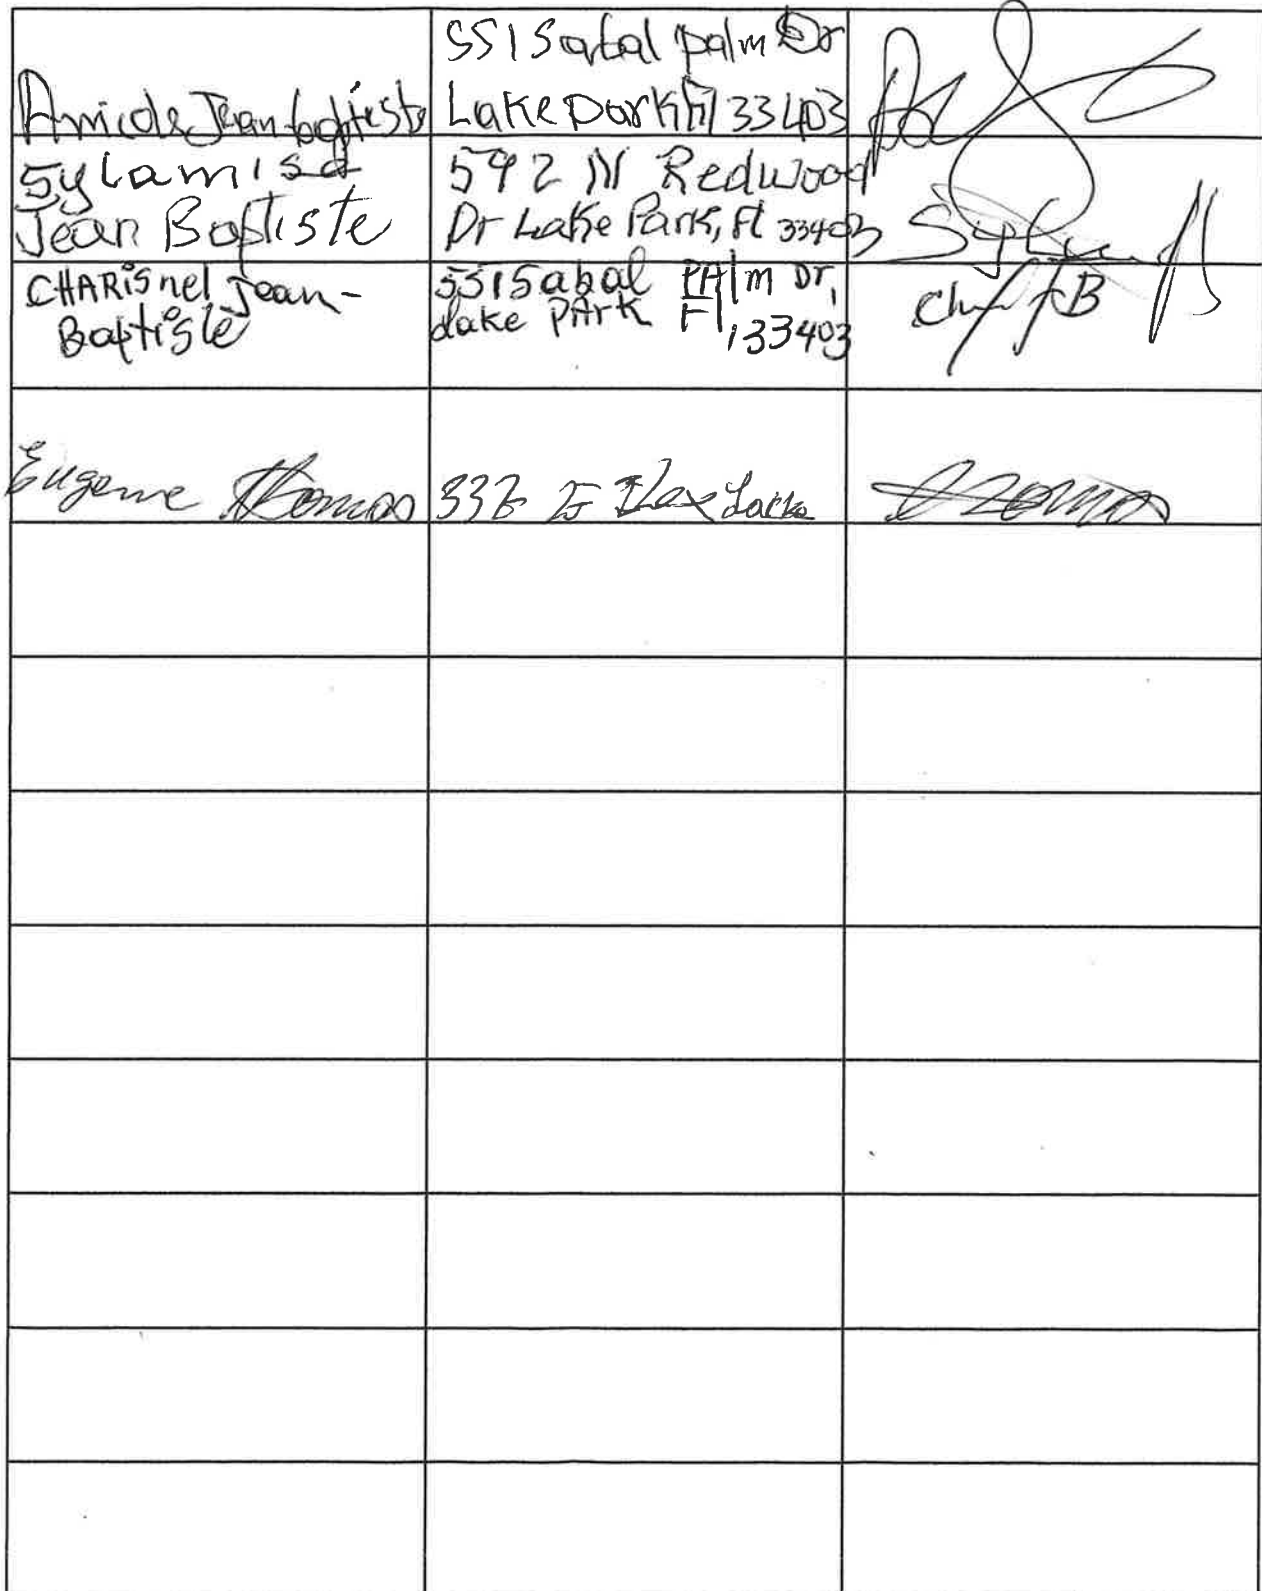 Amicole Jean baptiste
551 Sabal palm Dr
Lake park fl 33403
Sylamise
Jean Baptiste
592 N Redwood
Dr Lake Park, Fl 33403
CHARiSnel Jean-
Baptiste
551 Sabal PAlm Dr,
Lake PArk Fl, 33403
ch JB
Eugene Thomas